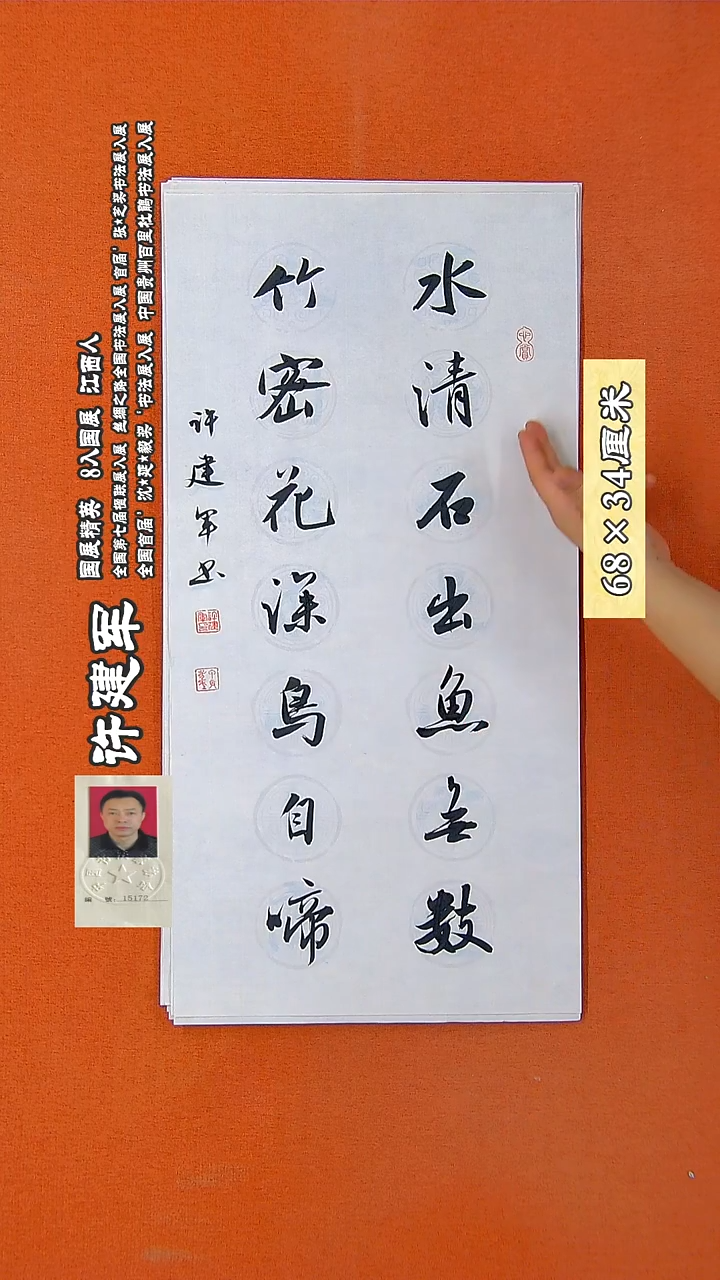 水清石出魚無數
竹密花深鳥自啼
许建军书
68×34厘米
许建军
国展精英 8入国展 江西人
全国第七届楹联展入展 丝绸之路全国书法展入展 首届'张*芝奖书法展入展
全国首届'沈*延*毅奖'书法展入展 中国贵州百里杜鹃书法展入展
编 號: 15172